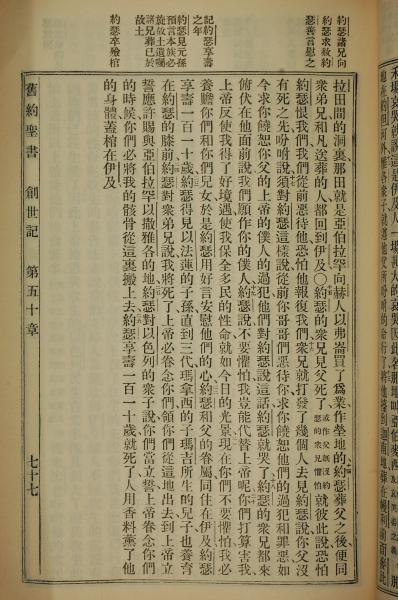 約瑟諸兄向
約瑟求赦約
瑟善言慰之
記約瑟享壽
之年
約瑟見元孫
預言本族必
旋故土遺囑
諸兄葬己於
故土
約瑟卒殮棺
拉田間的洞裏那田就是亞伯拉罕向赫人以弗崙買了爲業作塋地的約瑟葬父之後便同
衆弟兄和凡送葬的人都回到伊及〇約瑟的衆兄見父死了就彼此說恐怕
約瑟恨我們我們從前惡待他恐怕他報復我們衆兄就打發了幾個人去見約瑟說你父沒
有死之先吩咐說須對約瑟這樣說從前你哥哥們惡待你求你饒恕他們的過犯和罪惡如
今求你饒恕你父的上帝的僕人的過犯他們對約瑟說這話約瑟就哭了約瑟的衆兄都來
俯伏在他面前說我們願作你的僕人約瑟說不要懼怕我豈能代替上帝呢你們打算害我
上帝反使我得了好境遇使我保全多民的性命就如今日的光景現在你們不要懼怕我必
養贍你們和你們兒女於是約瑟用好言安慰他們的心約瑟和父的眷屬同住在伊及約瑟
享壽一百一十歲約瑟得見以法蓮的子孫直到三代瑪拿西的子瑪吉所生的兒子也養育
在約瑟的膝前約瑟對衆弟兄說我將死了上帝必眷念你們領你們從這地出去到上帝立
誓應許賜與亞伯拉罕以撒雅各的地約瑟對以色列的衆子說你們當立誓上帝眷念你們
的時候你們必將我的骸骨從這裏搬上去約瑟享壽一百一十歲就死了人用香料薰了他
的身體盖棺在伊及
舊約聖書 創世記 第五十章 七十七